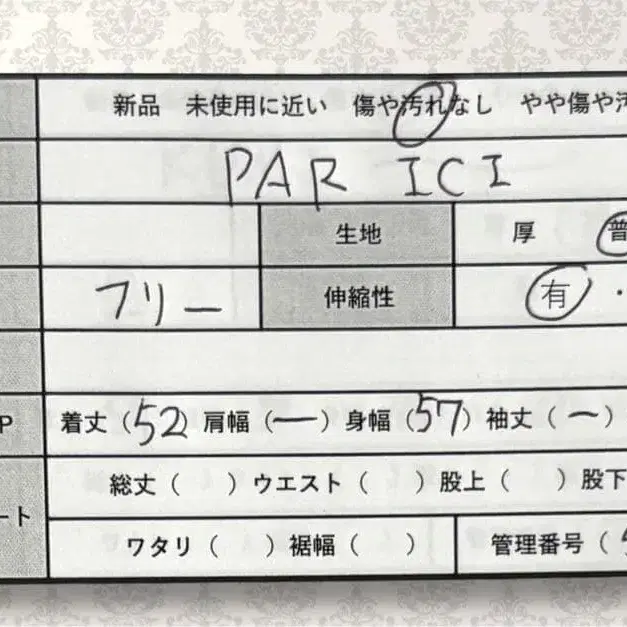 新品 未使用に近い 傷や汚れなし やや傷や汚
PAR ICI
生地 厚 普
フリー 伸縮性 有 ・
P 着丈(52)肩幅(ー)身幅(57)袖丈(ー)
総丈( )ウエスト( )股上( )股下
ート
ワタリ( )裾幅( ) 管理番号(